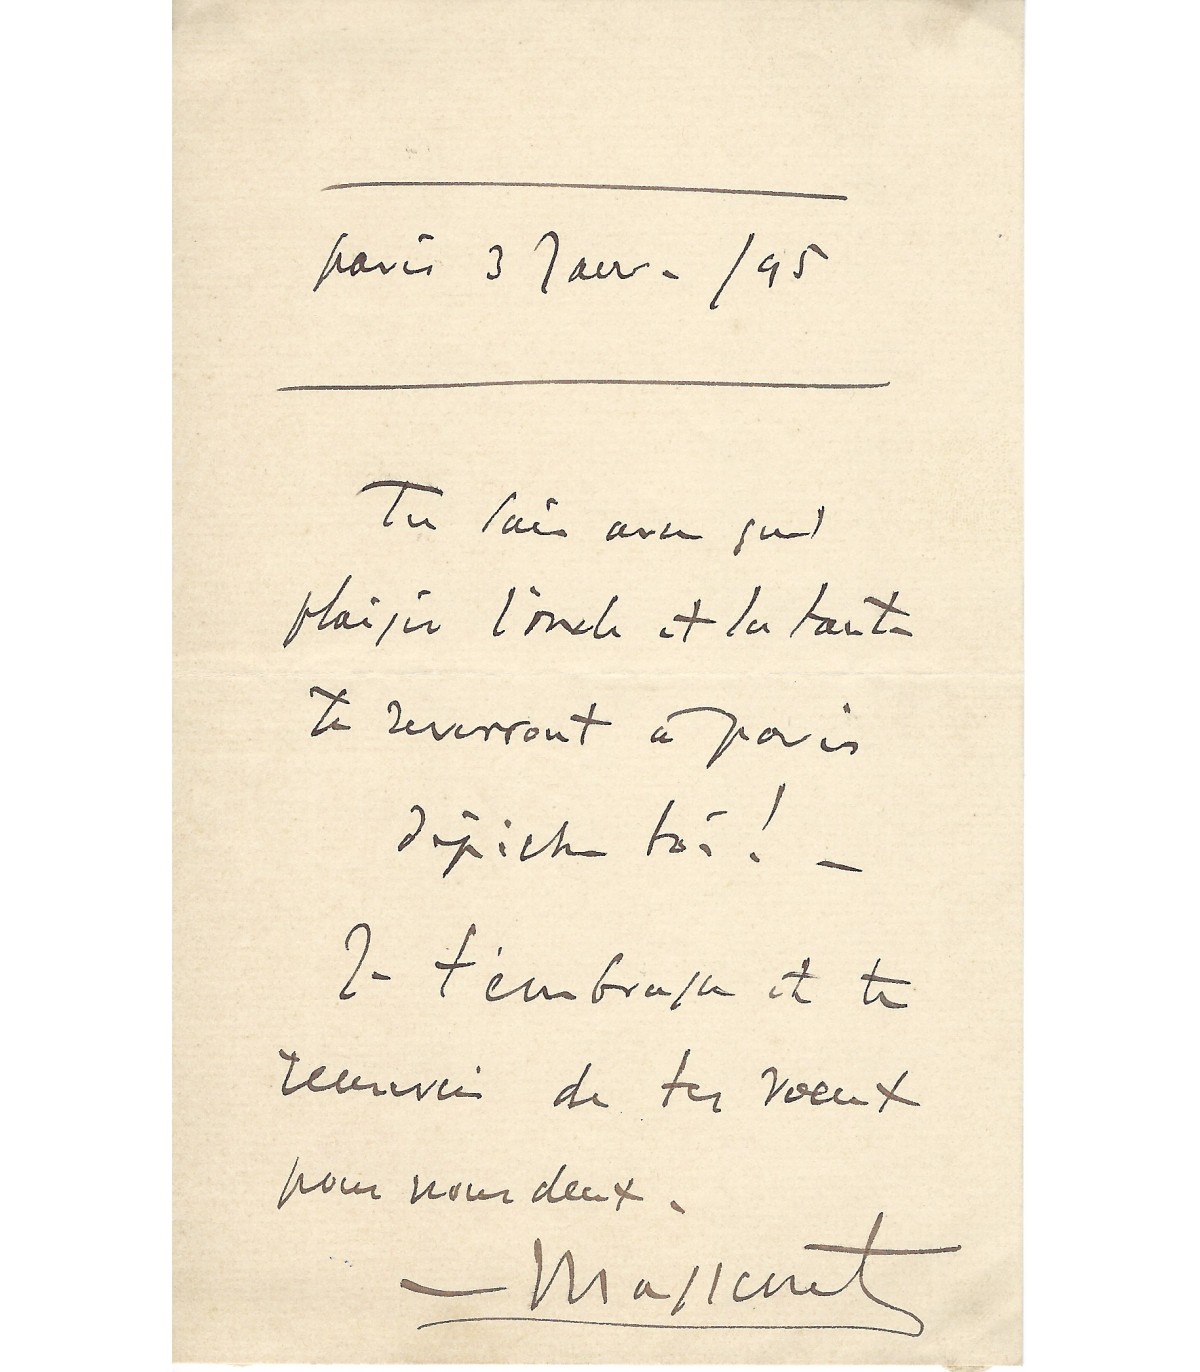 Paris 3 Janv. /95
Tu sais avec quel
plaisir l'oncle et la tante
te reverront à Paris
dépêche toi ! —
Je t'embrasse et te
remercie de tes voeux
pour nous deux.
— Massenet